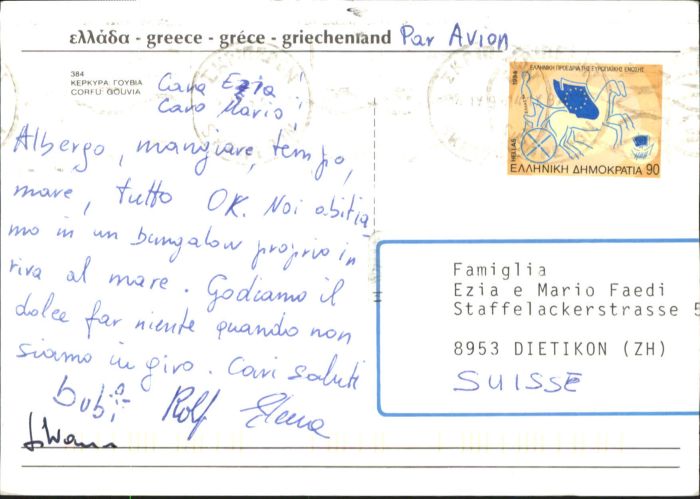 ελλάδα - greece - gréce - griechenland Par Avion
384
ΚΕΡΚΥΡΑ ΓΟΥΒΙΑ
CORFU GOUVIA
Cara Ezia!
Caro Mario!
Albergo, mangiare, tempo,
mare, tutto OK. Noi abitia-
mo in un bungalow proprio in
riva al mare. Godiamo il
dolce far niente quando non
siamo in giro. Cari saluti
Bubi Rolf Elena
ΕΛΛΗΝΙΚΗ ΠΡΟΕΔΡΙΑ ΤΗΣ ΕΥΡΩΠΑΪΚΗΣ ΕΝΩΣΗΣ
1994
HELLAS
ΕΛΛΗΝΙΚΗ ΔΗΜΟΚΡΑΤΙΑ 90
Famiglia
Ezia e Mario Faedi
Staffelackerstrasse 5
8953 DIETIKON (ZH)
SUISSE